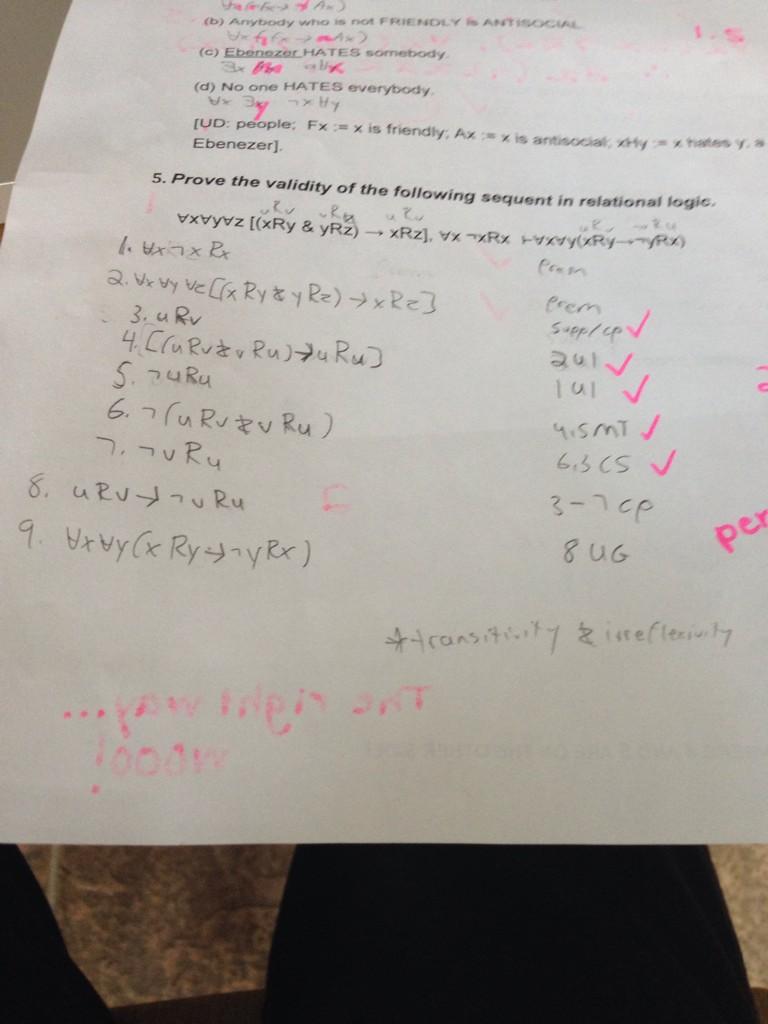 (b) Anybody who is not FRIENDLY is ANTISOCIAL
1.5
(c) Ebenezer HATES somebody.
∃x
(d) No one HATES everybody.
∀x ∃y ¬xHy
[UD: people; Fx := x is friendly; Ax := x is antisocial; xHy := x hates y; a
Ebenezer].
5. Prove the validity of the following sequent in relational logic.
uRv uRv
∀x∀y∀z [(xRy & yRz) → xRz], ∀x ¬xRx ⊢∀x∀y(xRy→¬yRx)
1. ∀x¬xRx Prem
2. ∀x∀y∀z[(xRy & yRz)→xRz] Prem
3. uRv Supp/cp
4. [(uRv & vRu)→uRu] 2UI
5. ¬uRu 1UI
6. ¬(uRv & vRu) 4,5MT
7. ¬vRu 6,3CS
8. uRv→¬vRu 3-7cp
9. ∀x∀y(xRy→¬yRx) 8UG
per
*transitivity & irreflexivity
The right way...
wooo!